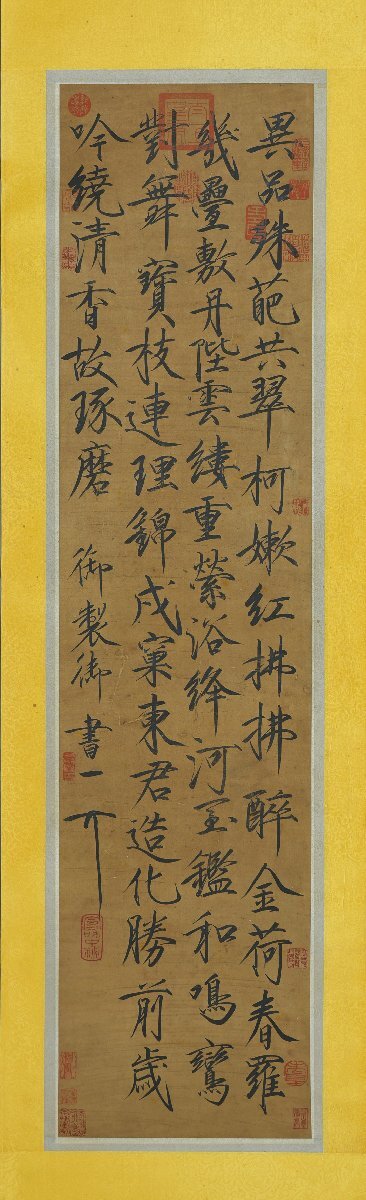 異品殊葩共翠柯嫩紅拂拂醉金荷春羅
幾疊敷丹陛雲縷重縈浴絳河玉鑑和鳴鸞
對舞寶枝連理錦成窠東君造化勝前歲
吟繞清香故琢磨
御製御書